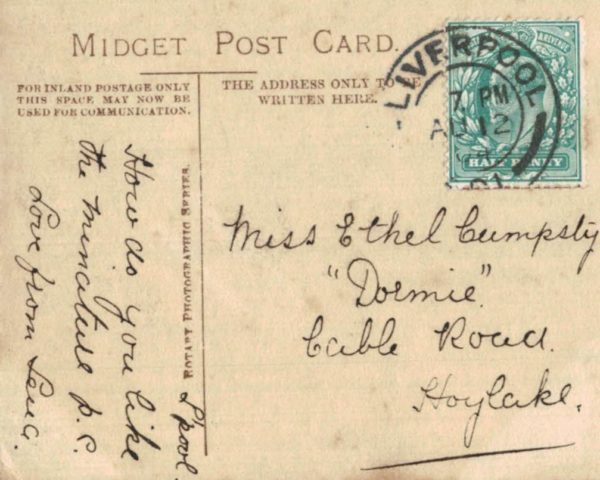 MIDGET POST CARD.
FOR INLAND POSTAGE ONLY
THIS SPACE MAY NOW BE
USED FOR COMMUNICATION.
THE ADDRESS ONLY TO BE
WRITTEN HERE.
LIVERPOOL
7 PM
AU 12
& REVENUE
HALFPENNY
ROTARY PHOTOGRAPHIC SERIES.
L'pool.
How do you like
the minature p.c.
Love from
Miss Ethel Cumpsty
"Dormie"
Cable Road.
Hoylake.